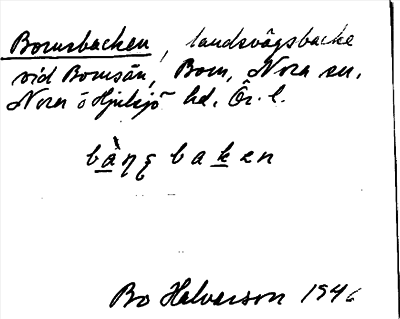 Bornsbacken, landsvägsbacke
vid Bornsån, Born, Nora sn,
Nora o Hjulsjö hd, Ör. l.
baken
Bo Halvarson 1946